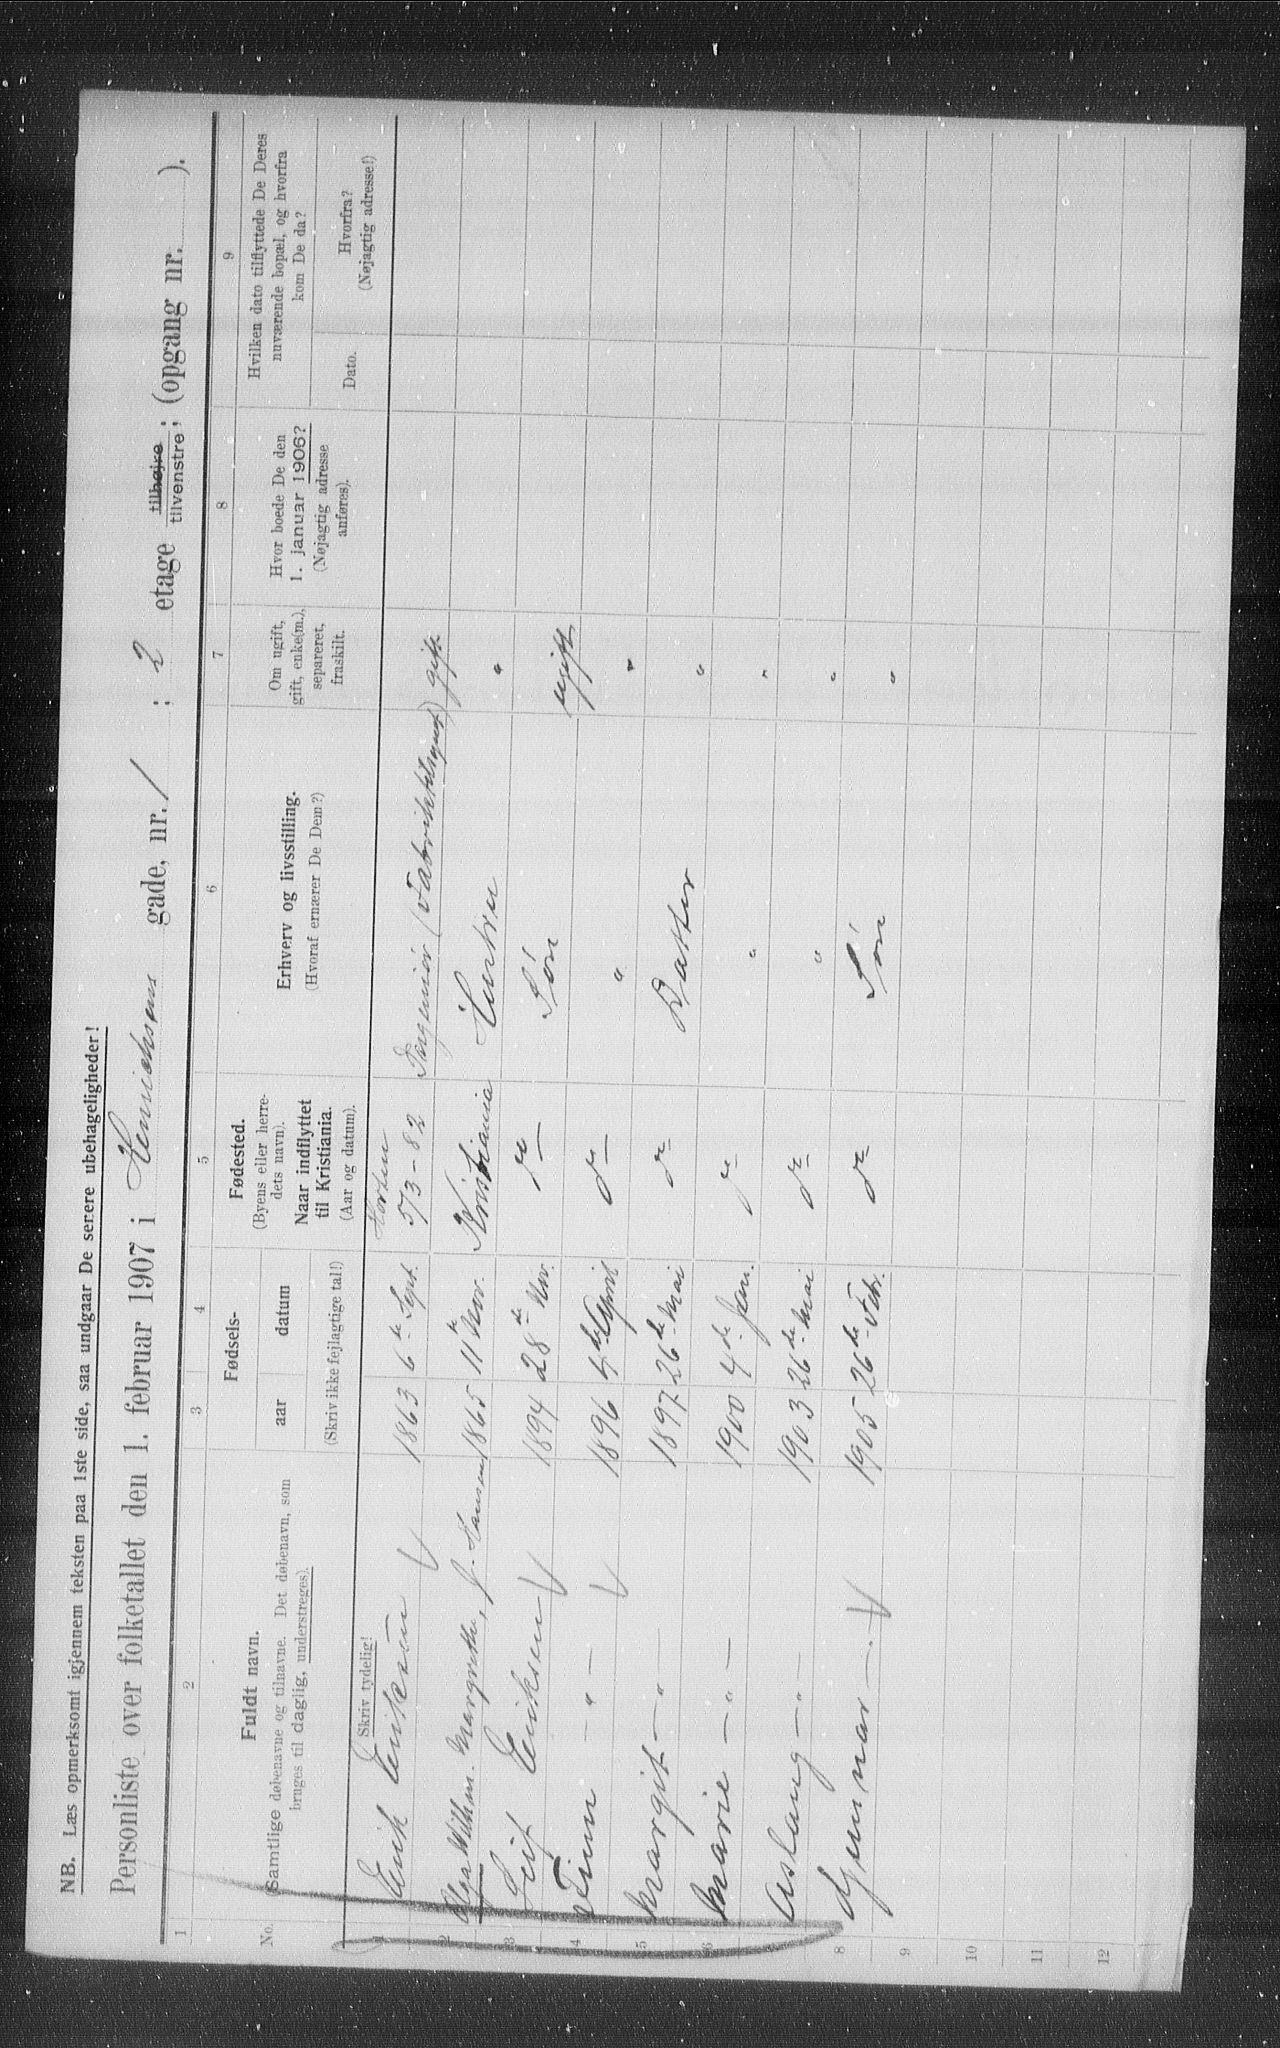 NB. Læs opmerksomt igjennem teksten paa 1ste side, saa undgaar De senere ubehageligheder!
Personliste over folketallet den 1. februar 1907 i Henrichsens gade, nr. 1 ; 2 etage tilhøjre tilvenstre; (opgang nr. ).
1 2 3 4 5 6 7 8 9
No. Fuldt navn. (Samtlige døbenavne og tilnavne. Det døbenavn, som bruges til daglig, understreges). Skriv tydelig!
Fødsels- aar datum (Skriv ikke fejlagtige tal!)
Fødested. (Byens eller herredets navn). Naar indflyttet til Kristiania. (Aar og datum).
Erhverv og livsstilling. (Hvoraf ernærer De Dem?)
Om ugift, gift, enke(m.), separeret, fraskilt.
Hvor boede De den 1. januar 1906? (Nøjagtig adresse anføres).
Hvilken dato tilflyttede De Deres nuværende bopæl, og hvorfra kom De da?
Dato. Hvorfra? (Nøjagtig adresse!)
1 Erik Eriksen 1863 6te Sept. Horten 5/3-82 Ingeniør (Fabriktilsynet) gift
2 Olga Wilhm. Margrethe, f. Hansen 1865 11te Nov. Kristiania Hustru "
3 Leif Eriksen 1894 28de Nov. do Søn ugift
4 Finn - " - 1896 4de April do " "
5 Margit - " - 1897 26de Mai do Datter "
6 Marie - " - 1900 4de Jan. do " "
7 Aslaug - " - 1903 26de Mai do " "
8 Gunnar - " 1905 26de Febr. do Søn "
9
10
11
12